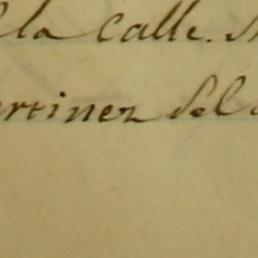 la Calle.
rtinez del